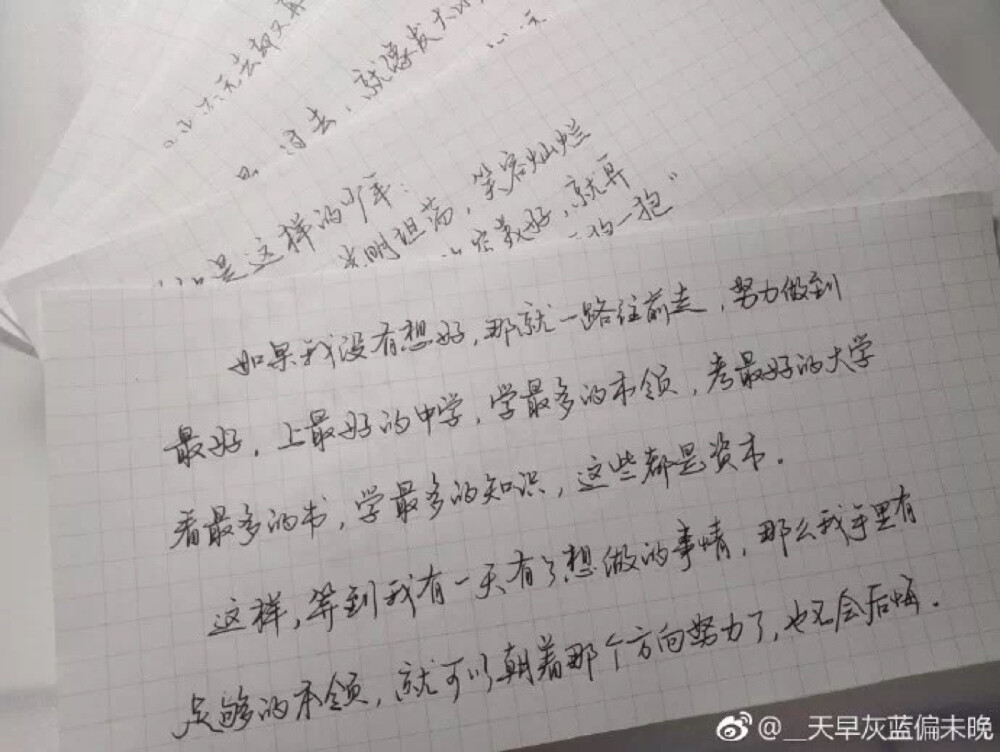 去却又再
过去，就像发大水
是这样的少年：
光明坦荡，笑容灿烂
就再
抱一抱”
如果我没有想好，那就一路往前走，努力做到
最好，上最好的中学，学最多的本领，考最好的大学
看最多的书，学最多的知识，这些都是资本．
这样，等到我有一天有了想做的事情，那么我手里有
足够的本领，就可以朝着那个方向努力了，也不会后悔．
@__天早灰蓝偏未晚